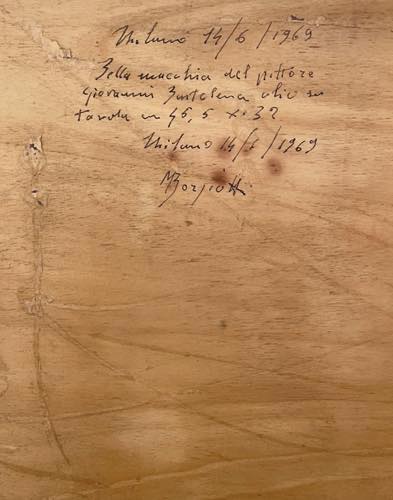 Milano 14/6/1969
Bella macchia del pittore
Giovanni Bartolena olio su
tavola m 45,5 x 32
Milano 14/6/1969
M Borgiotti